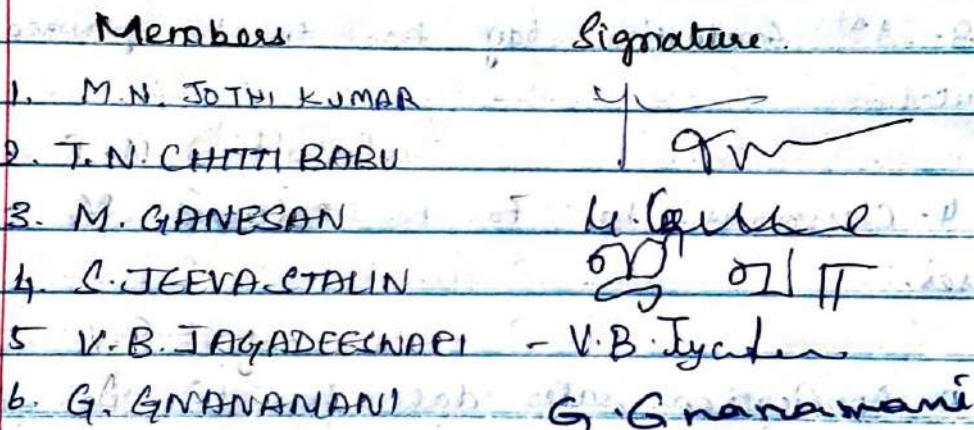 Members Signature.
1. M.N. JOTHI KUMAR
2. T.N. CHITTI BABU
3. M. GANESAN
4. S. JEEVA STALIN
5 V.B. JAGADEESWARI - V.B.
6. G. GNANAMANI G. Gnanamani